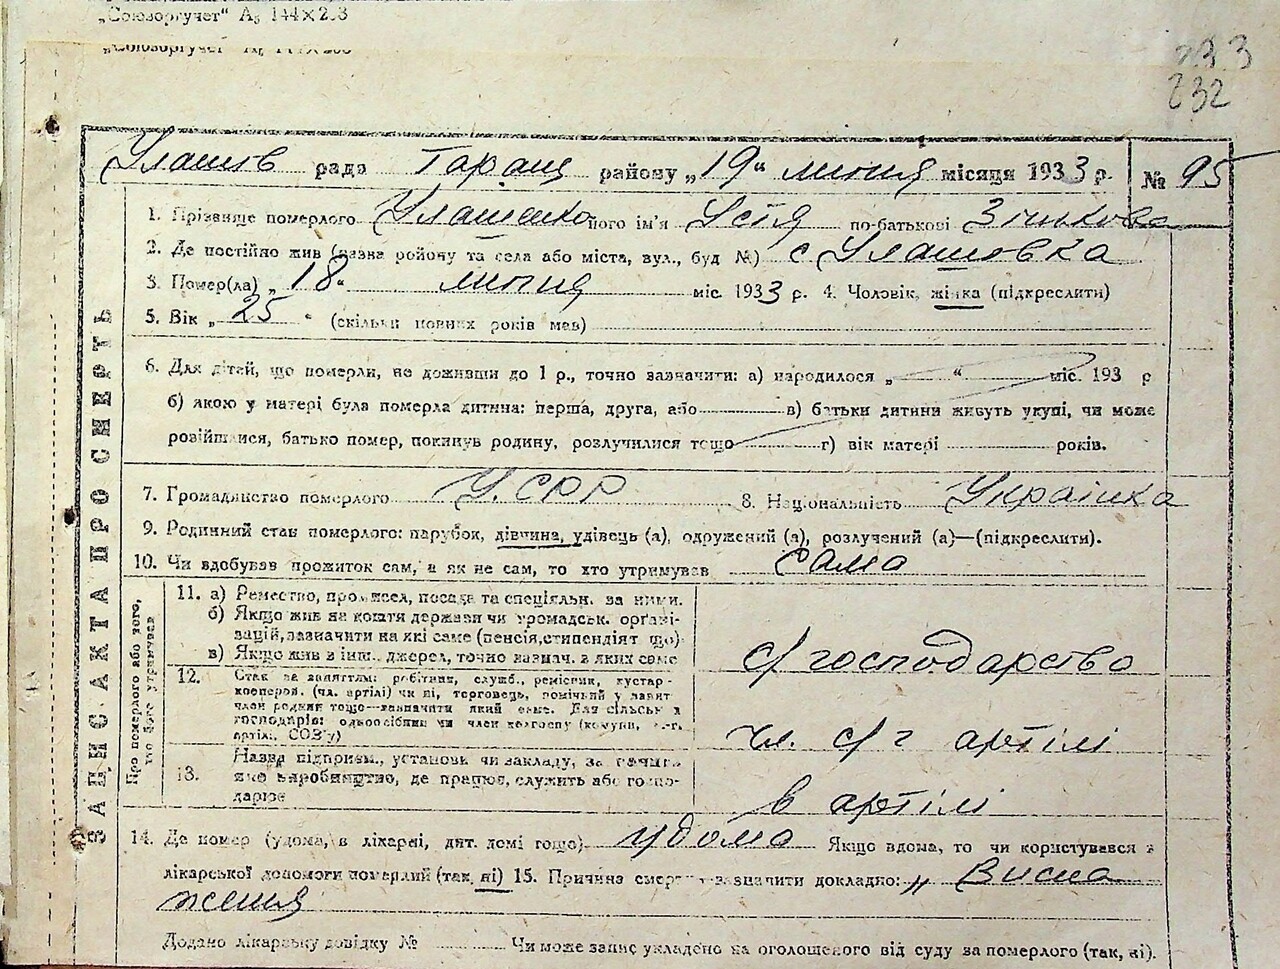 „Союзоргучет“ А₅ 144×203
„Союзоргучет“ А₅
233
232
Улашів рада Таращ району „19“ липня місяця 1933 р. № 95
ЗАПИС АКТА ПРО СМЕРТЬ
1. Прізвище померлого Улашенко його ім'я Устя по-батькові
2. Де постійно жив (назва ройону та села або міста, вул., буд №) с Улашовка
3. Помер(ла) „18“ липня міс. 1933 р. 4. Чоловік, жінка (підкреслити)
5. Вік „25“ (скільки повних років мав)
6. Для дітей, що померли, не доживши до 1 р., точно зазначити: а) народилося „ “ міс. 193 р
б) якою у матері була померла дитина: перша, друга, або в) батьки дитини живуть укупі, чи може
розійшлися, батько помер, покинув родину, розлучилися тощо г) вік матері років.
7. Громадянство померлого У.СРР 8. Національність Українка
9. Родинний стан померлого: парубок, дівчина, удівець (а), одружений (а), розлучений (а)—(підкреслити).
10. Чи здобував прожиток сам, а як не сам, то хто утримував сама
Про померлого або того, хто його утримував
11. а) Ремество, промисел, посада та спеціяльн. за ними.
б) Якщо жив на кошти держави чи громадськ. органі-
зацій, зазначити на які саме (пенсія, стипендіят що)
в) Якщо жив в інш. джерел, точно зазнач. в яких саме
с/господарство
12. Стан за заняттям: робітник, служб., ремісник, кустар-
кооперов. (чл. артілі) чи ні, торговець, помічний у занят
член родини тощо—зазначити який саме. Для сільськ х
господарів: одноосібник чи член колгоспу (комуни, с.-г.
артілі, СОЗ'у)
чл. с/г артілі
13. Назва підприєм., установи чи закладу, за
яке виробництво, де працює, служить або госпо-
дарює
в артілі
14. Де помер (удома, в лікарні, дит. домі тощо) удома Якщо вдома, то чи користувався з
лікарської допомоги померлий (так, ні) 15. Причина смерти зазначити докладно: „ Висна
ження
Додано лікарську довідку № Чи може запис укладено на оголошеного від суду за померлого (так, ні).